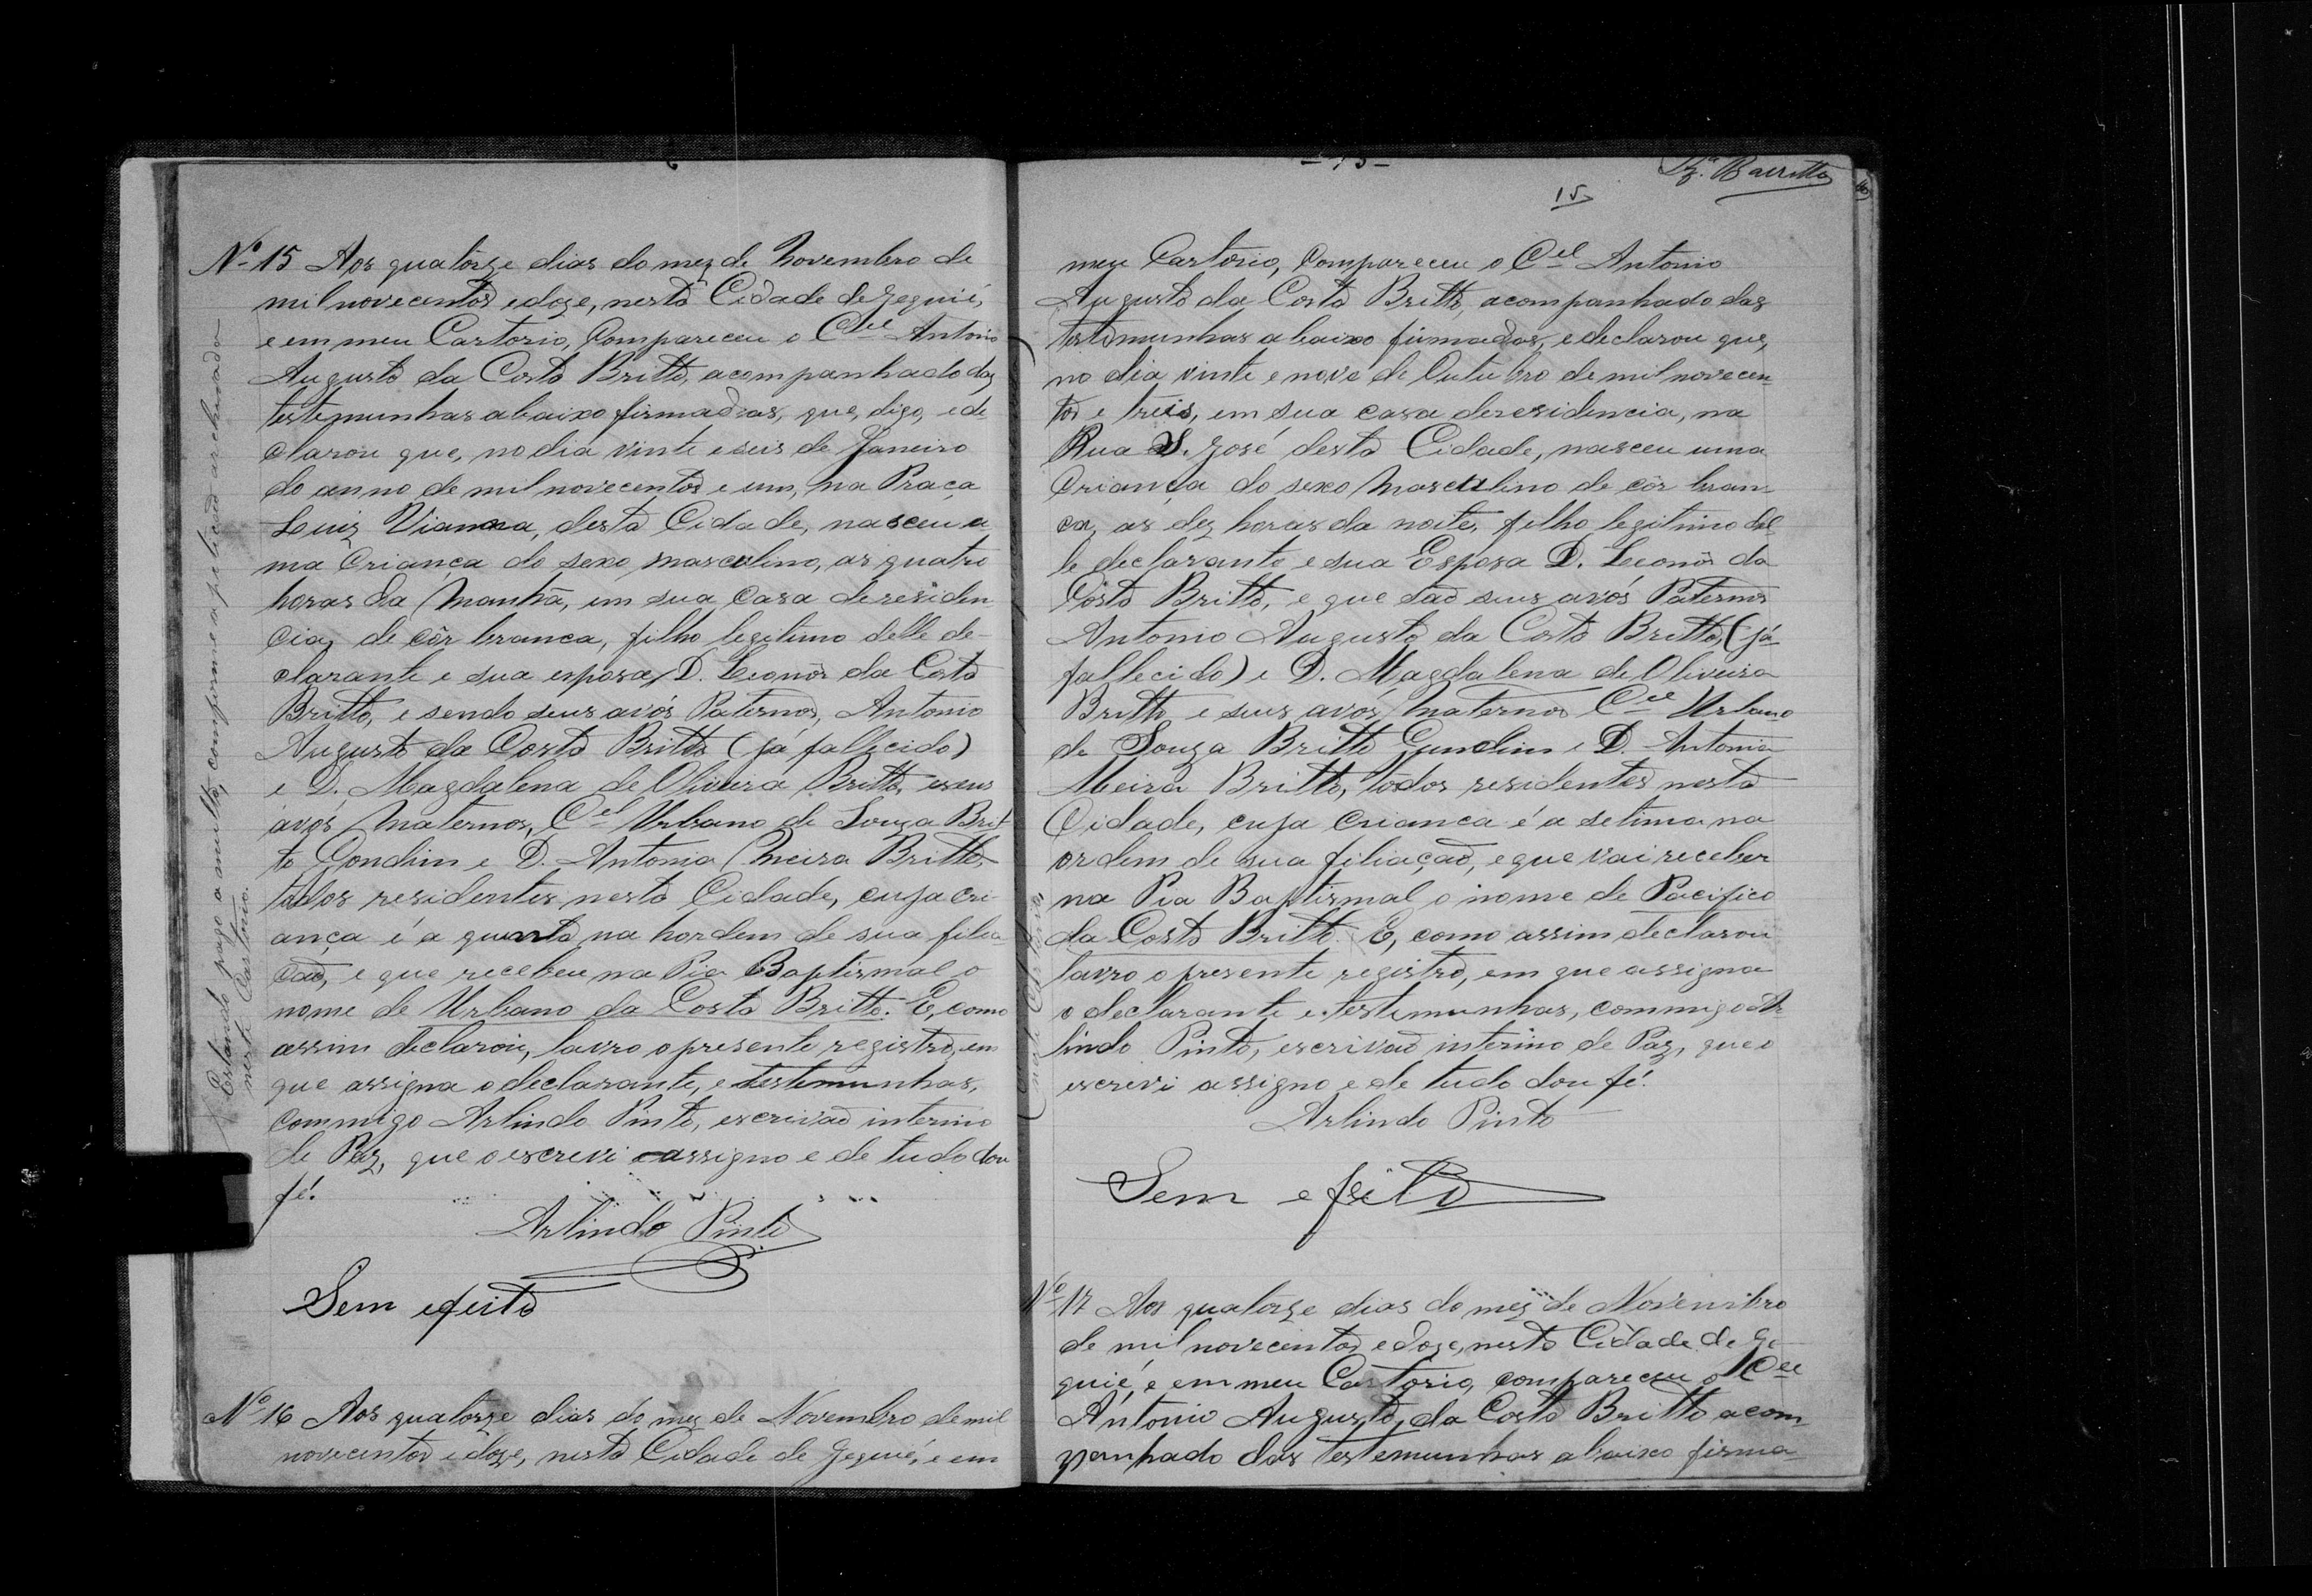 Nº 15 Aos quatorze dias do mez de Novembro de
mil novecentos e doze, nesta Cidade de Jequié,
e em meu Cartorio, Compareceu o Cel Antonio
Augusto da Costa Britto, acompanhado das
testemunhas abaixo firmadas, que, digo, e de-
clarou que, no dia vinte e seis de Janeiro
do anno de mil novecentos e um, na Praça
Luiz Vianna, desta Cidade, nasceu u
ma Criança do sexo masculino, as quatro
horas da Manhã, em sua Casa de residen
cia, de côr branca, filho legitimo delle de-
clarante e sua esposa, D. Leonôr da Costa
Britto, e sendo seus avós Paternos, Antonio
Augusto da Costa Britto (já fallecido)
e D. Magdalena de Oliveira Britto, e seus
avós Maternos, Cel Urbano de Souza Brit-
to Gondim e D. Antonia Meira Britto,
todos residentes nesta Cidade, cuja cri-
ança é a quinta na hordem de sua filia
ção, e que recebeu na Pia Baptismal o
nome de Urbano da Costa Britto. E, como
assim declarou, lavro o presente registro, em
que assigna o declarante, e testemunhas,
commigo Arlindo Pinto, escrivão interino
de Paz, que o escrevi e assigno e de tudo dou
fé.
Arlindo Pinto
Sem efeito
Nº 16 Aos quatorze dias do mez de Novembro de mil
novecentos e doze, nesta Cidade de Jequié, e em
Estando pago a multa, conforme a petição archivada
neste Cartorio.
- 15 -
15
Barretto
meu Cartorio, Compareceu o Cel Antonio
Augusto da Costa Britto, acompanhado das
testemunhas abaixo firmadas, e declarou que,
no dia vinte e nove de Outubro de mil novecen
tos e treis, em sua casa de residencia, na
Rua S. José desta Cidade, nasceu uma
Criança do sexo Masculino de côr bran-
ca, as dez horas da noite, filho legitimo del
le declarante e sua Esposa D. Leonôr da
Costa Britto, e que são seus avós Paternos
Antonio Augusto da Costa Britto, (já
fallecido) e D. Magdalena de Oliveira
Britto e seus avós Maternos Cel Urbano
de Souza Britto Gundim e D. Antonia
Meira Britto, todos residentes nesta
Cidade, cuja Criança é a setima na
ordem de sua filiação, e que vai receber
na Pia Baptismal o nome de Pacifico
da Costa Britto. E, como assim declarou
lavro o presente registro, em que assigna
o declarante e testemunhas, commigo Ar
lindo Pinto, escrivão interino de Paz, que o
escrevi assigno e de tudo dou fé.
Arlindo Pinto
Sem efeito
Nº 17 Aos quatorze dias do mez de Novembro
de mil novecentos e doze, nesta Cidade de Je
quié, e em meu Cartorio, compareceu o Cel
Antonio Augusto da Costa Britto acom
panhado das testemunhas abaixo firma-